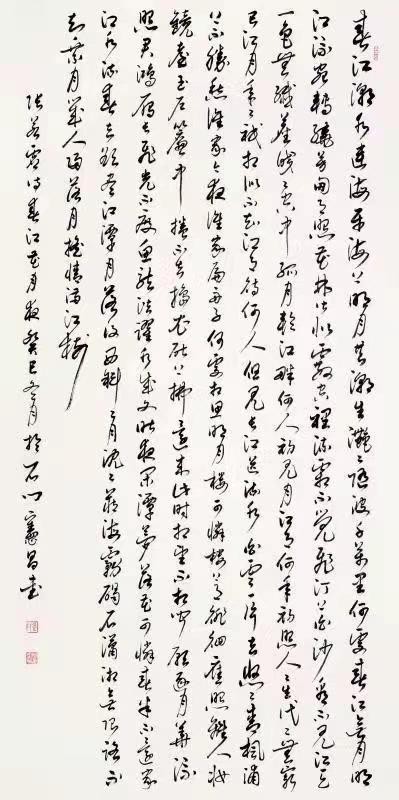 春江潮水連海平海上明月共潮生灔灔隨波千萬里何處春江無月明
江流宛轉繞芳甸月照花林皆似霰空裡流霜不覺飛汀上白沙看不見江天
一色無纖塵皎皎空中孤月輪江畔何人初見月江月何年初照人人生代代無窮
已江月年年祇相似不知江月待何人但見長江送流水白雲一片去悠悠青楓浦
上不勝愁誰家今夜扁舟子何處相思明月樓可憐樓上月徘徊應照離人妝
鏡臺玉戶簾中捲不去擣衣砧上拂還來此時相望不相聞願逐月華流
照君鴻雁長飛光不度魚龍潛躍水成文昨夜閒潭夢落花可憐春半不還家
江水流春去欲盡江潭月落復西斜斜月沉沉藏海霧碣石瀟湘無限路不
知乘月幾人歸落月搖情滿江樹
張若虛詩春江花月夜癸巳冬月於石門憲昌書